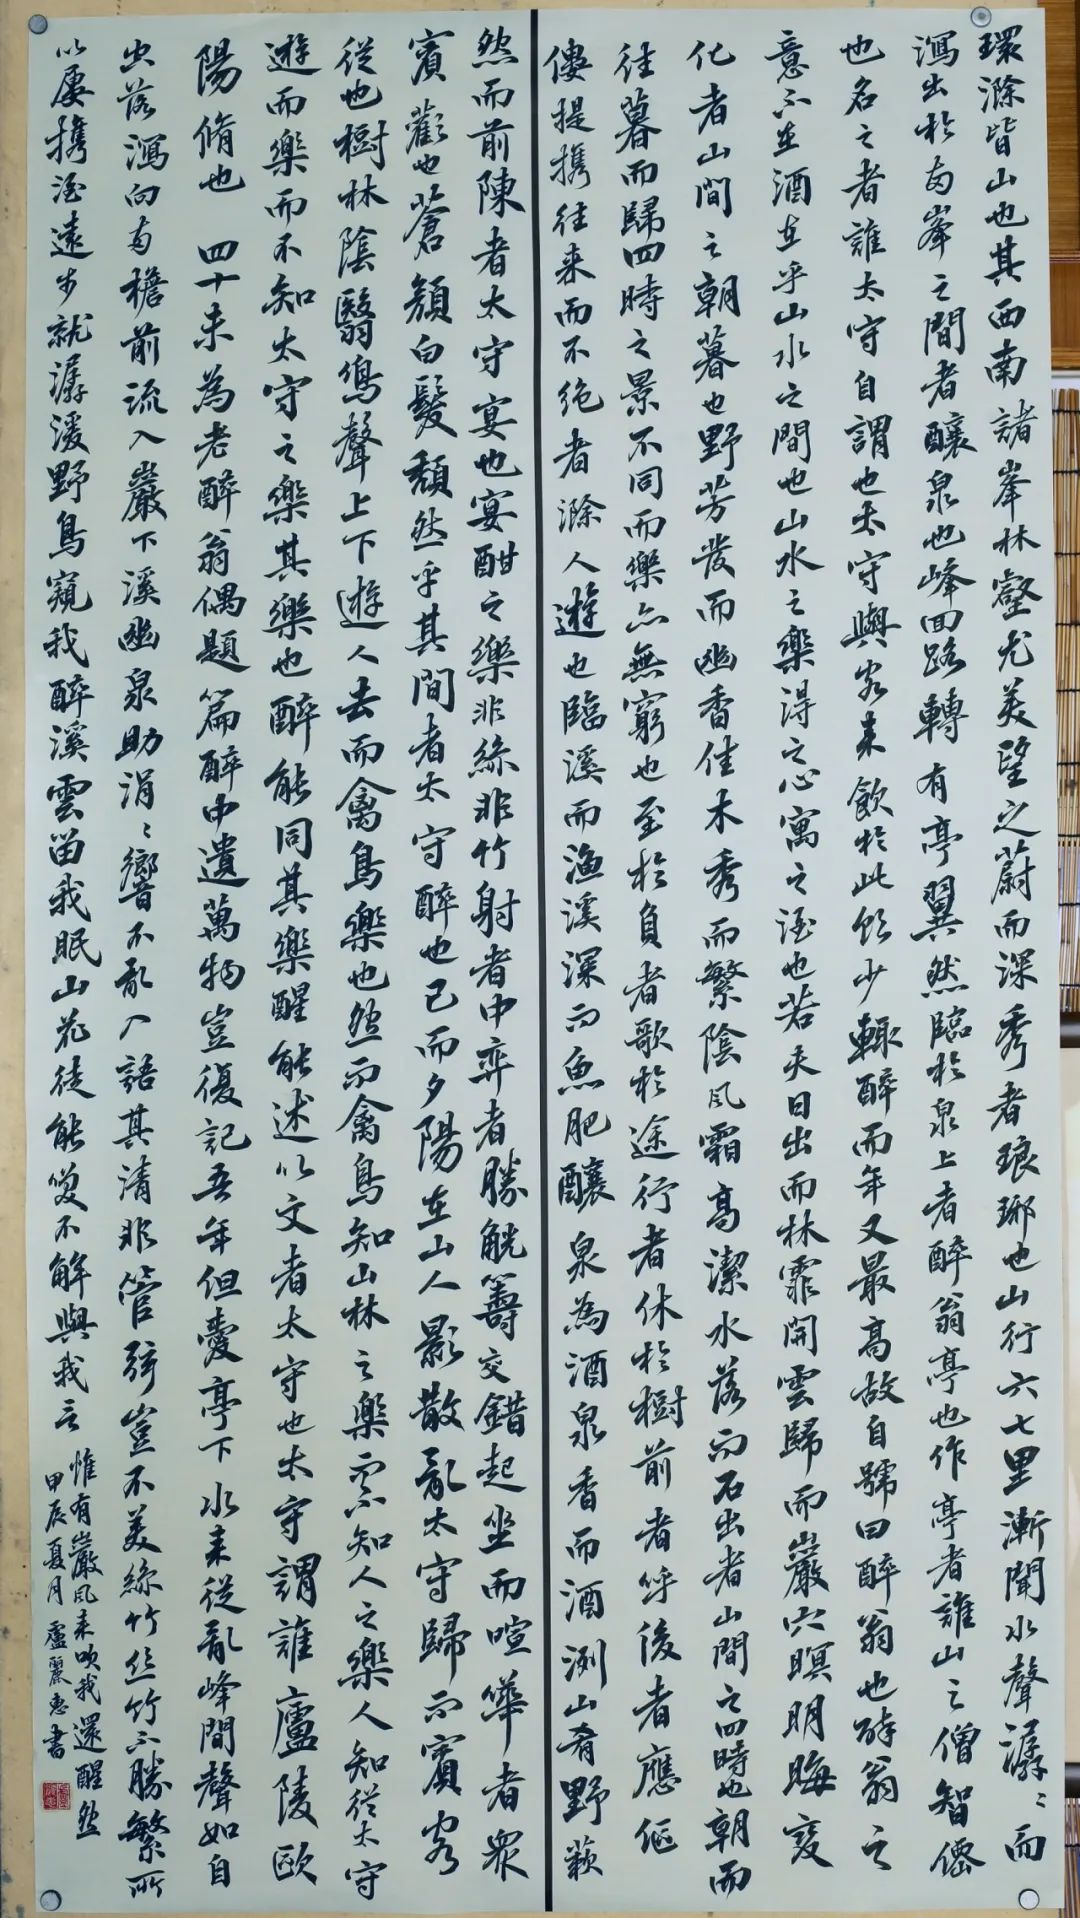 環滁皆山也其西南諸峯林壑尤美望之蔚而深秀者琅琊也山行六七里漸聞水聲潺〻而
瀉出於两峯之間者釀泉也峰回路轉有亭翼然臨於泉上者醉翁亭也作亭者誰山之僧智僊
也名之者誰太守自謂也太守與客来飲於此飲少輒醉而年又最高故自號曰醉翁也醉翁之
意不在酒在乎山水之間也山水之樂得之心寓之酒也若夫日出而林霏開雲歸而巖穴暝明晦变
化者山間之朝暮也野芳发而幽香佳木秀而繁陰風霜高潔水落而石出者山間之四時也朝而
往暮而歸四時之景不同而樂亦無窮也至於負者歌於途行者休於樹前者呼後者應傴
僂提携往来而不绝者滁人遊也臨溪而漁溪深而魚肥釀泉為酒泉香而酒洌山肴野蔌
然而前陳者太守宴也宴酣之樂非絲非竹射者中弈者勝觥籌交錯起坐而喧嘩者眾
賓歡也蒼顏白髮頹然乎其間者太守醉也已而夕陽在山人影散亂太守歸而賓客
從也樹林陰翳鳴聲上下遊人去而禽鳥樂也然而禽鳥知山林之樂而不知人之樂人知從太守
遊而樂而不知太守之樂其樂也醉能同其樂醒能述以文者太守也太守謂誰廬陵歐
陽脩也 四十未為老醉翁偶題篇醉中遺萬物豈復記吾年但愛亭下水来從亂峰間聲如自
虫落瀉向两檐前流入巖下溪幽泉助涓〻響不亂人語其清非管弦豈不美絲竹丝竹不勝繁所
以屡携酒遠步就潺湲野鳥窺我醉溪雲留我眠山花徒能笑不解與我言
惟有巖風来吹我還醒然
甲辰夏月盧麗惠書